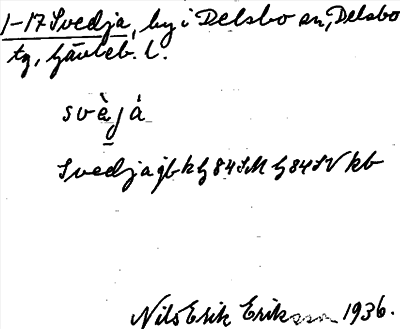 1-17 Svedja, by i Delsbo sn, Delsbo
tg, Gävleb. l.
svèjá
Svedja gbk 84SM 84SV kb
Nils Erik Eriksson 1936.